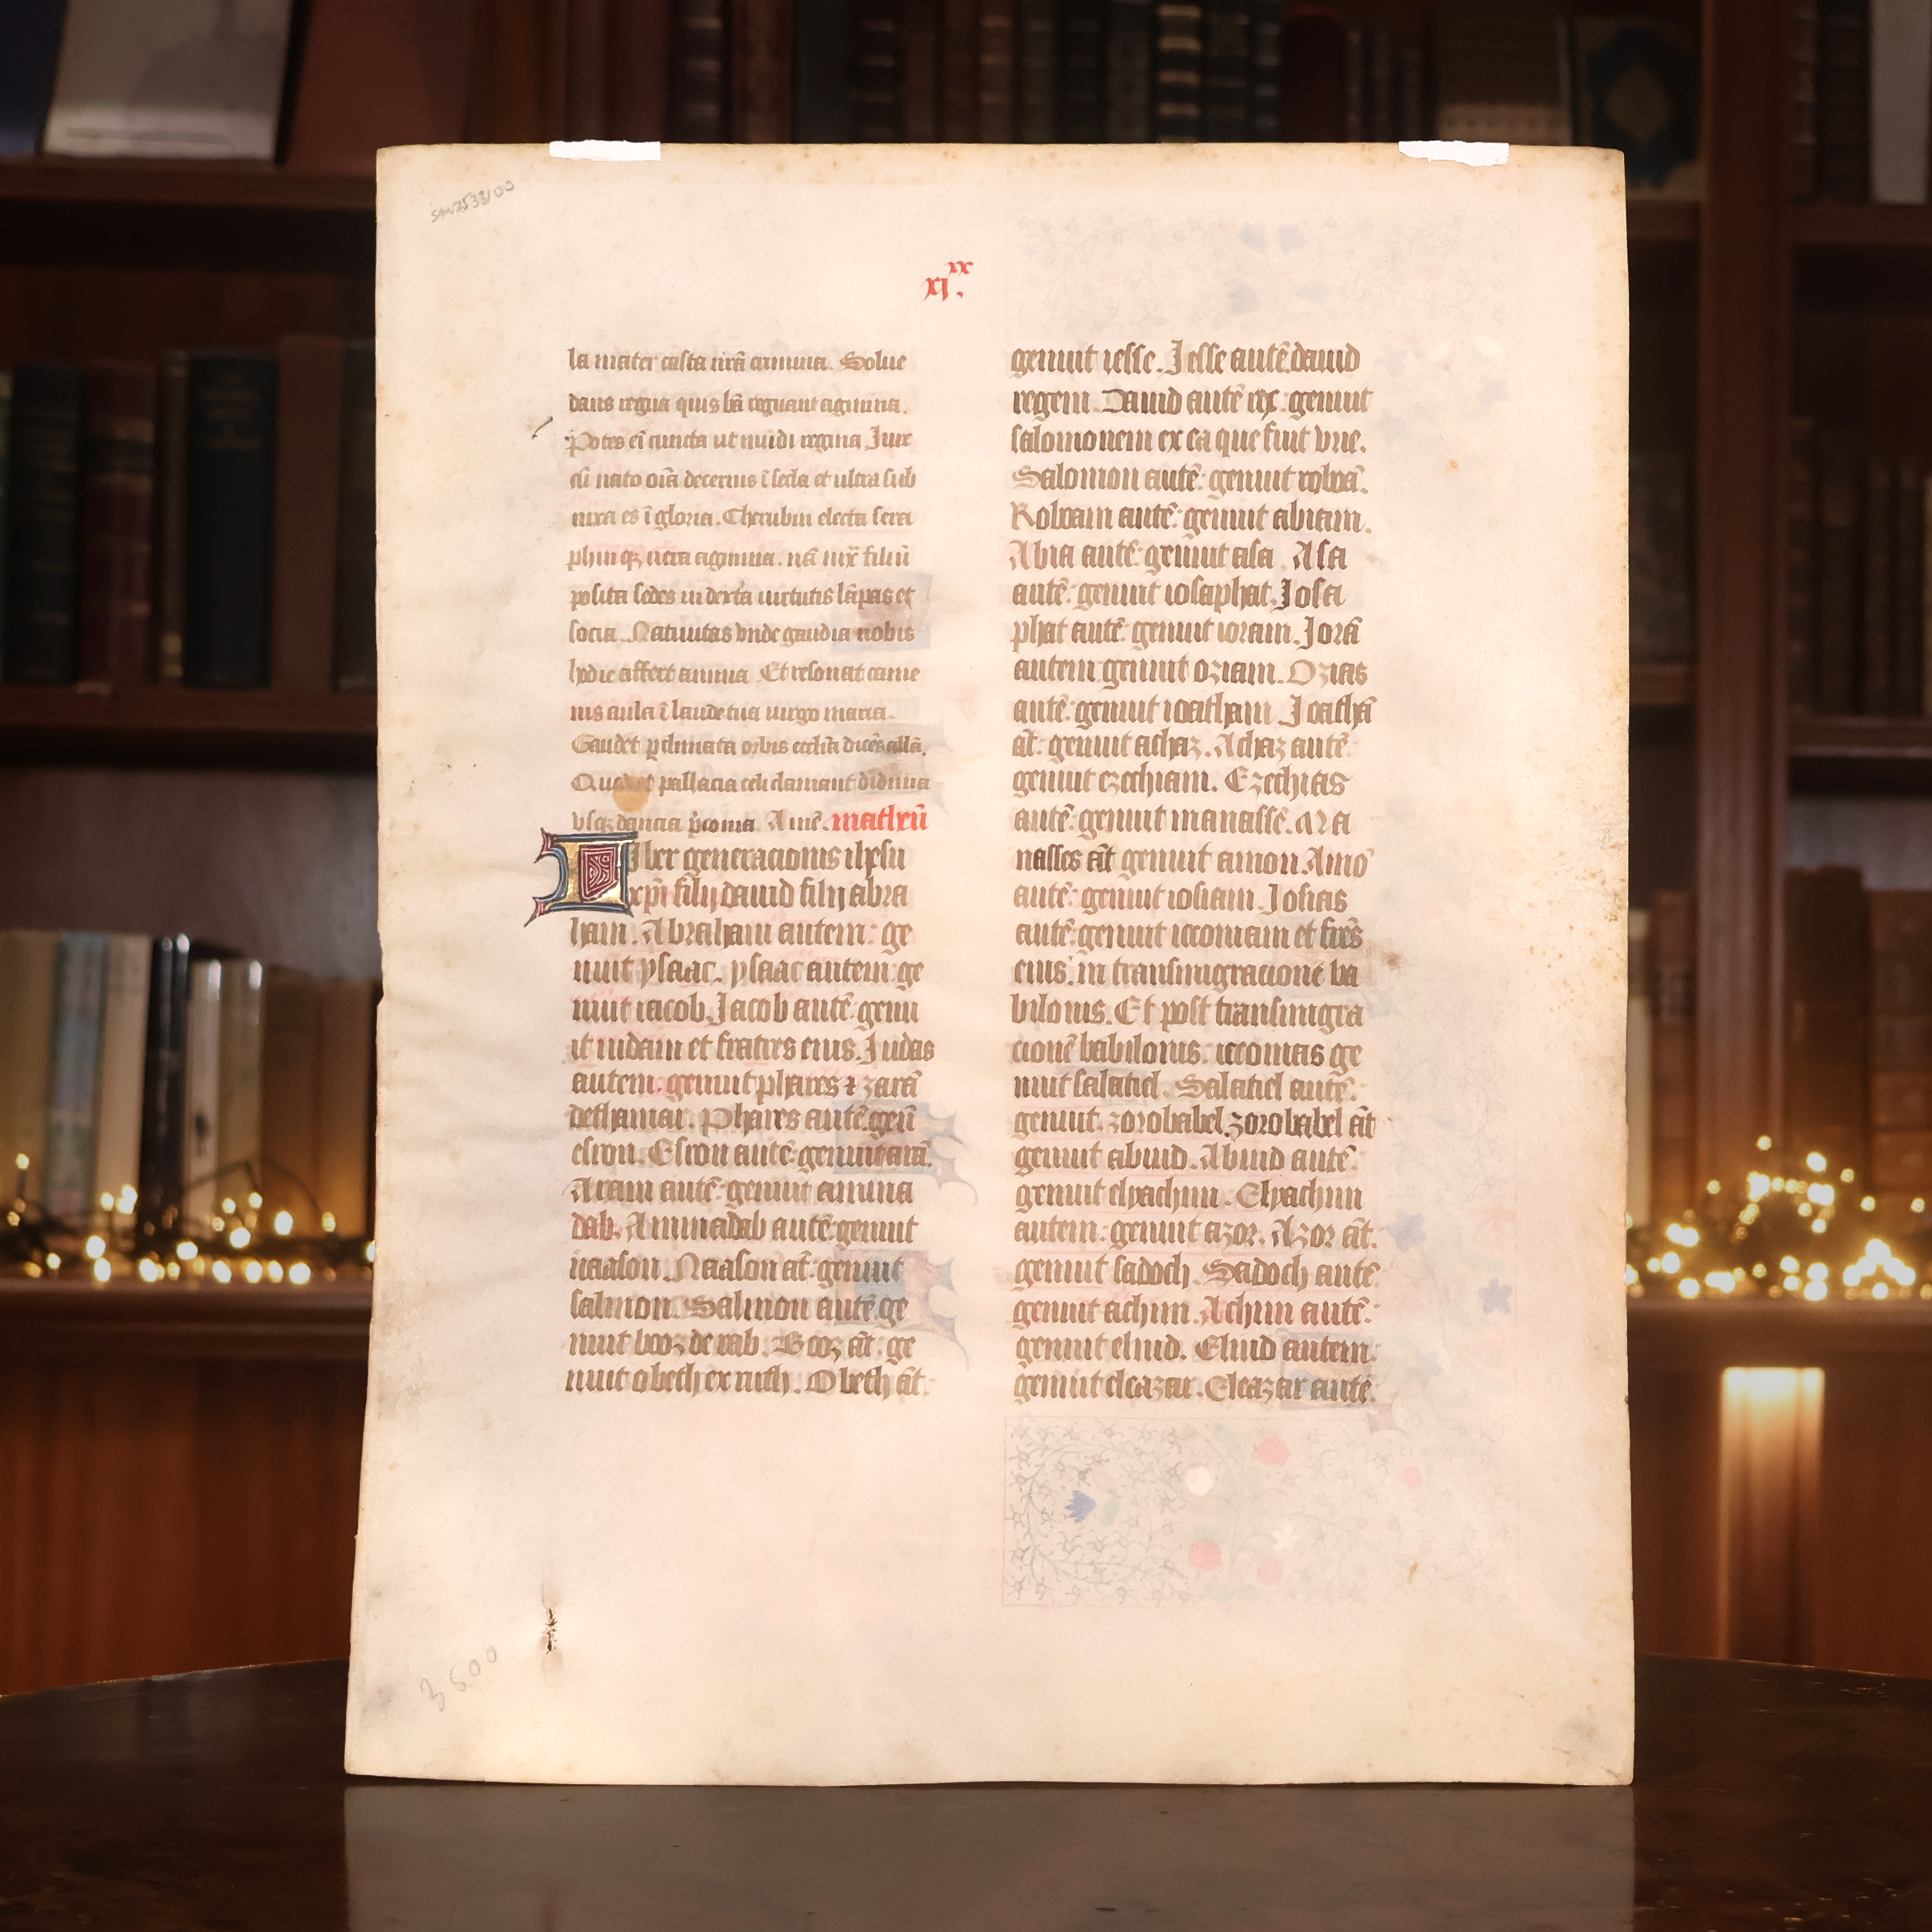 xi.xx
la mater casta nr̄a crimina. Solue
dans regna quis bā regnant agmina.
Potes eī cuncta ut mūdi regina Iure
cū nato oīa decernis ī secla et ultra sub
nixa es ī gloria. Cherubin electa sera
phinqꝫ agmina. nā iuxͭ filiū
posita sedes in dextra virtutis lāpas et
socia. Natiuitas vnde gaudia nobis
hodie affert annua. Et resonat came
nis aula ī laude tua virgo maria.
Gaudet orbis ecclīa dicēs allā.
Quod et pallacia celi clamant
vsqꝫ Amē. matheū
Iber generacionis ih̄su
xp̄i filij dauid filij abra
ham. Abraham autem: ge
nuit ysaac. ysaac autem: ge
nuit iacob. Iacob autē: genu
it iudam et fratres eius. Iudas
autem: genuit phares ⁊ zarā
dethamar. Phares autē: genū
esrom. Esrom autē: genuit arā.
Aram autē: genuit amina
dab. Aminadab autē: genuit
naason. Naason āt: genuit
salmon. Salmon autē: ge
nuit booz de rab. Booz āt: ge
nuit obeth ex ruth. Obeth āt:
genuit iesse. Iesse autē: dauid
regem. Dauid autē rex: genuit
salomonem ex ea que fuit vrie.
Salomon autē: genuit roboā.
Roboam autē: genuit abiam.
Abia autē: genuit asa. Asa
autē: genuit iosaphat. Iosa
phat autē: genuit ioram. Iorā
autem: genuit oziam. Ozias
autē: genuit ioatham. Ioathā
āt: genuit achaz. Achaz autē:
genuit ezechiam. Ezechias
autē: genuit manassē. Ma
nasses āt genuit amon. Amō
autē: genuit iosiam. Iosias
autē: genuit ieconiam et fr̄es
eius: in transmigracionē ba
bilonis. Et post transmigra
cionē babilonis: ieconias ge
nuit salatiel. Salatiel autē:
genuit: zorobabel. zorobabel āt
genuit abiud. Abiud autē:
genuit elyachim. Elyachim
autem: genuit azor. Azor āt:
genuit sadoch. Sadoch autē
genuit achim. Achim autē:
genuit eliud. Eliud autem:
genuit eleazar. Eleazar autē:
35.00